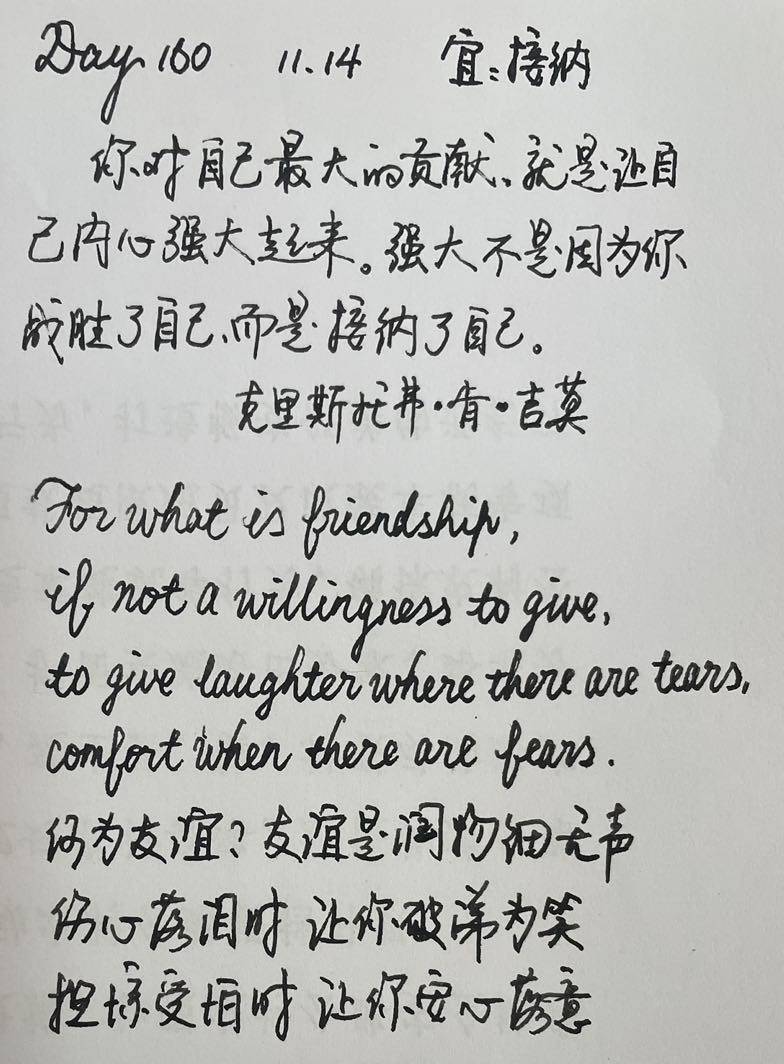 Day 160 11.14 宜:接纳
你对自己最大的贡献、就是让自
己内心强大起来。强大不是因为你
战胜了自己、而是接纳了自己。
克里斯托弗·肯·吉莫
For what is friendship,
if not a willingness to give,
to give laughter where there are tears,
comfort when there are fears.
何为友谊?友谊是润物细无声
伤心落泪时 让你破涕为笑
担惊受怕时 让你安心落意